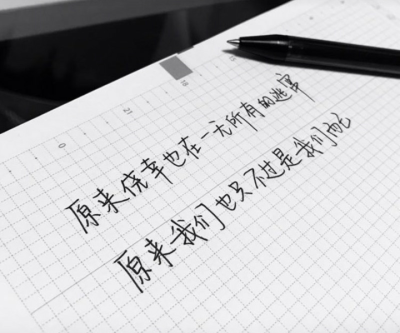 原来侥幸也在一无所有的逃窜
原来我们也只不过是我们而已